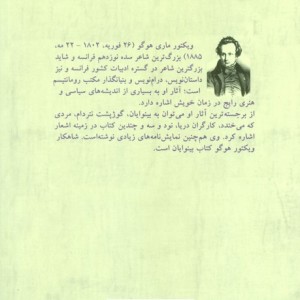 ویکتور ماری هوگو (۲۶ فوریه، ۱۸۰۲ – ۲۲ مه،
۱۸۸۵) بزرگ‌ترین شاعر سده نوزدهم فرانسه و شاید
بزرگترین شاعر در گستره ادبیات کشور فرانسه و نیز
داستان‌نویس، درام‌نویس و بنیانگذار مکتب رومانتیسم
است؛ آثار او به بسیاری از اندیشه‌های سیاسی و
هنری رایج در زمان خویش اشاره دارد.
از برجسته‌ترین آثار او می‌توان به بینوایان، گوژپشت نتردام، مردی
که می‌خندد، کارگران دریا، نود و سه و چندین کتاب در زمینه اشعار
اشاره کرد. وی هم‌چنین نمایش‌نامه‌های زیادی نوشته‌است. شاهکار
ویکتور هوگو کتاب بینوایان است.